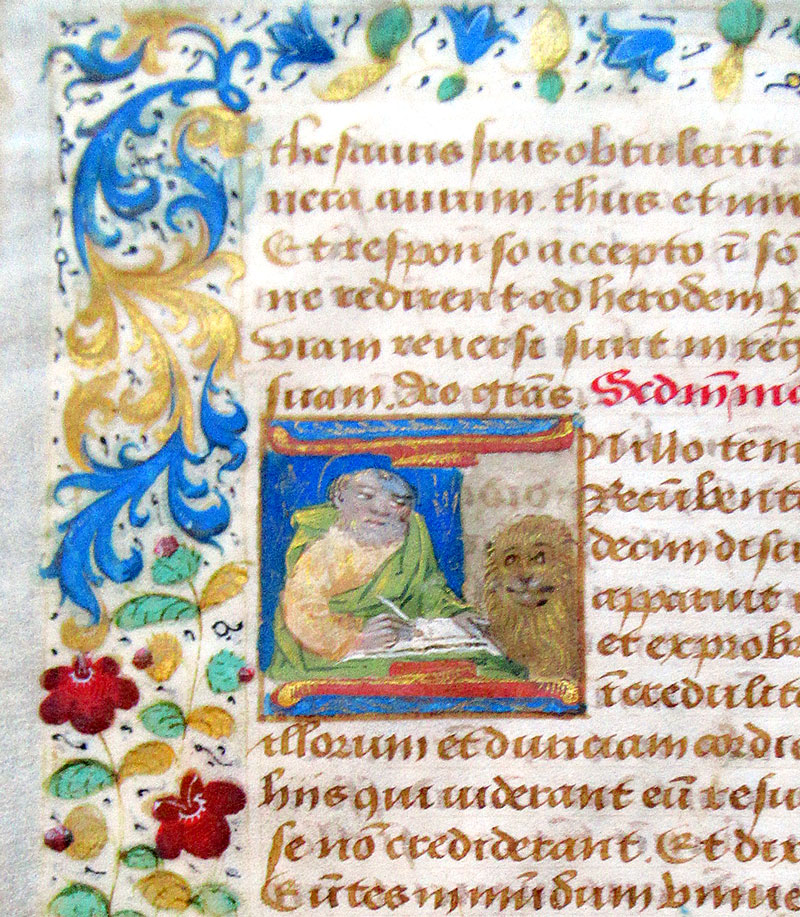 thesauris suis obtulerūt
nera. aurum. thus et
Et respon so accepto ī so
ne redirent ad herodem
viam reuerse sunt in
suam. Deo grās Scdm̄
N illo tem
Recūbenti
decim disci
apparuit
et exprobr
īcredulita
illorum et duriciam cordis
hiis qui uiderant eū resu
se nō crediderant. Et dix
Eūtes in mūdum vniue